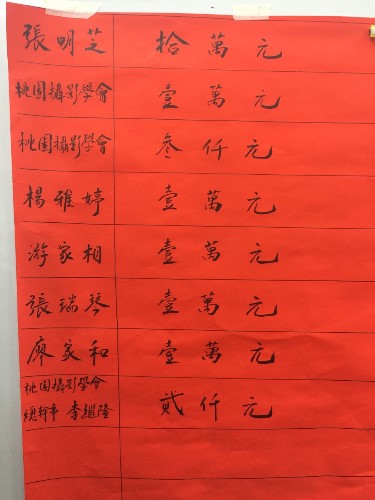 張明芝 拾萬元
桃園攝影學會 壹萬元
桃園攝影學會 叁仟元
楊雅婷 壹萬元
游家相 壹萬元
張瑞琴 壹萬元
廖家和 壹萬元
桃園攝影學會
總幹事 李繼隆 貳仟元